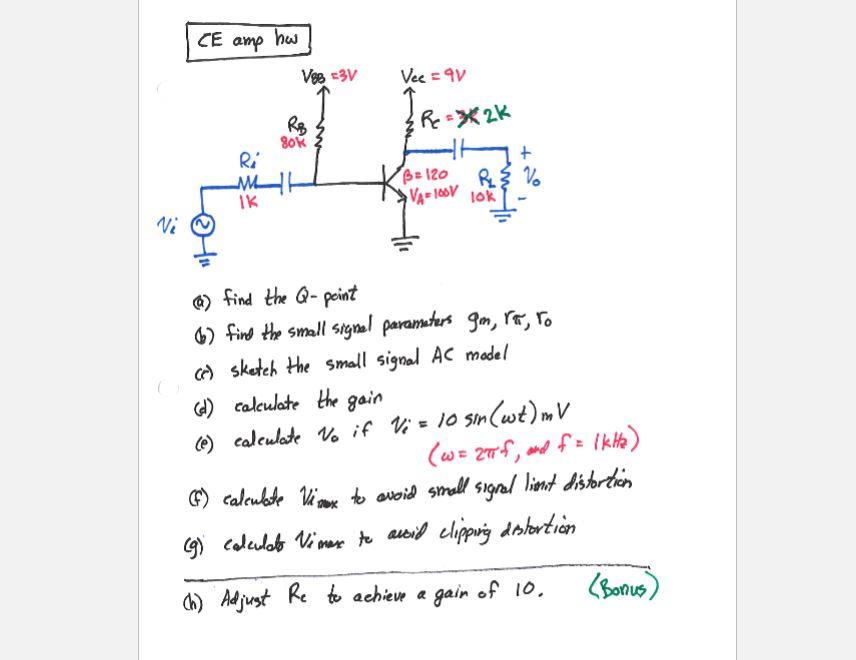 CE amp hw
VBB =3V
Vcc = 9V
RB
80K
Rc = 3K 2K
Ri
1K
β = 120
VA = 100V
RL
10K
+
Vo
-
Vi
(a) find the Q-point
(b) find the small signal parameters gm, rπ, ro
(c) sketch the small signal AC model
(d) calculate the gain
(e) calculate Vo if Vi = 10 sin(ωt) mV
(ω = 2πf, and f = 1kHz)
(f) calculate Vi max to avoid small signal limit distortion
(g) calculate Vi max to avoid clipping distortion
(h) Adjust Rc to achieve a gain of 10. (Bonus)